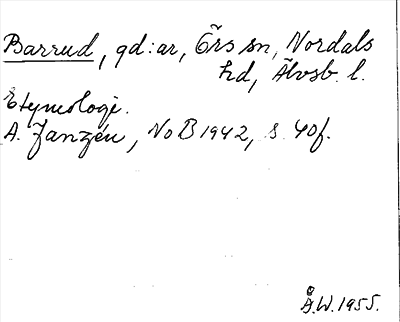 Barrud, gd:ar, Örs sn, Nordals
hd, Älvsb. l.
Etymologi.
A. Janzén, NoB 1942, s. 40f.
Å.W. 1955.